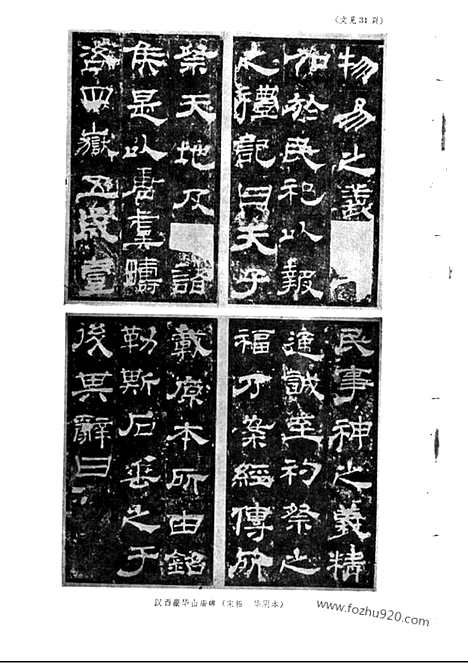 (文见 31 页)
物易之義
加於民祀以報
之禮記曰天子
祭天地及 諸
侯是以唐虞疇
咨四嶽五歲壹
民事神之義精
通誠至礿祭之
福乃案經傳所
載原本所由銘
勒斯石垂之于
後其辭曰
汉西嶽华山庙碑（宋拓 华阴本）
www.fozhu920.com